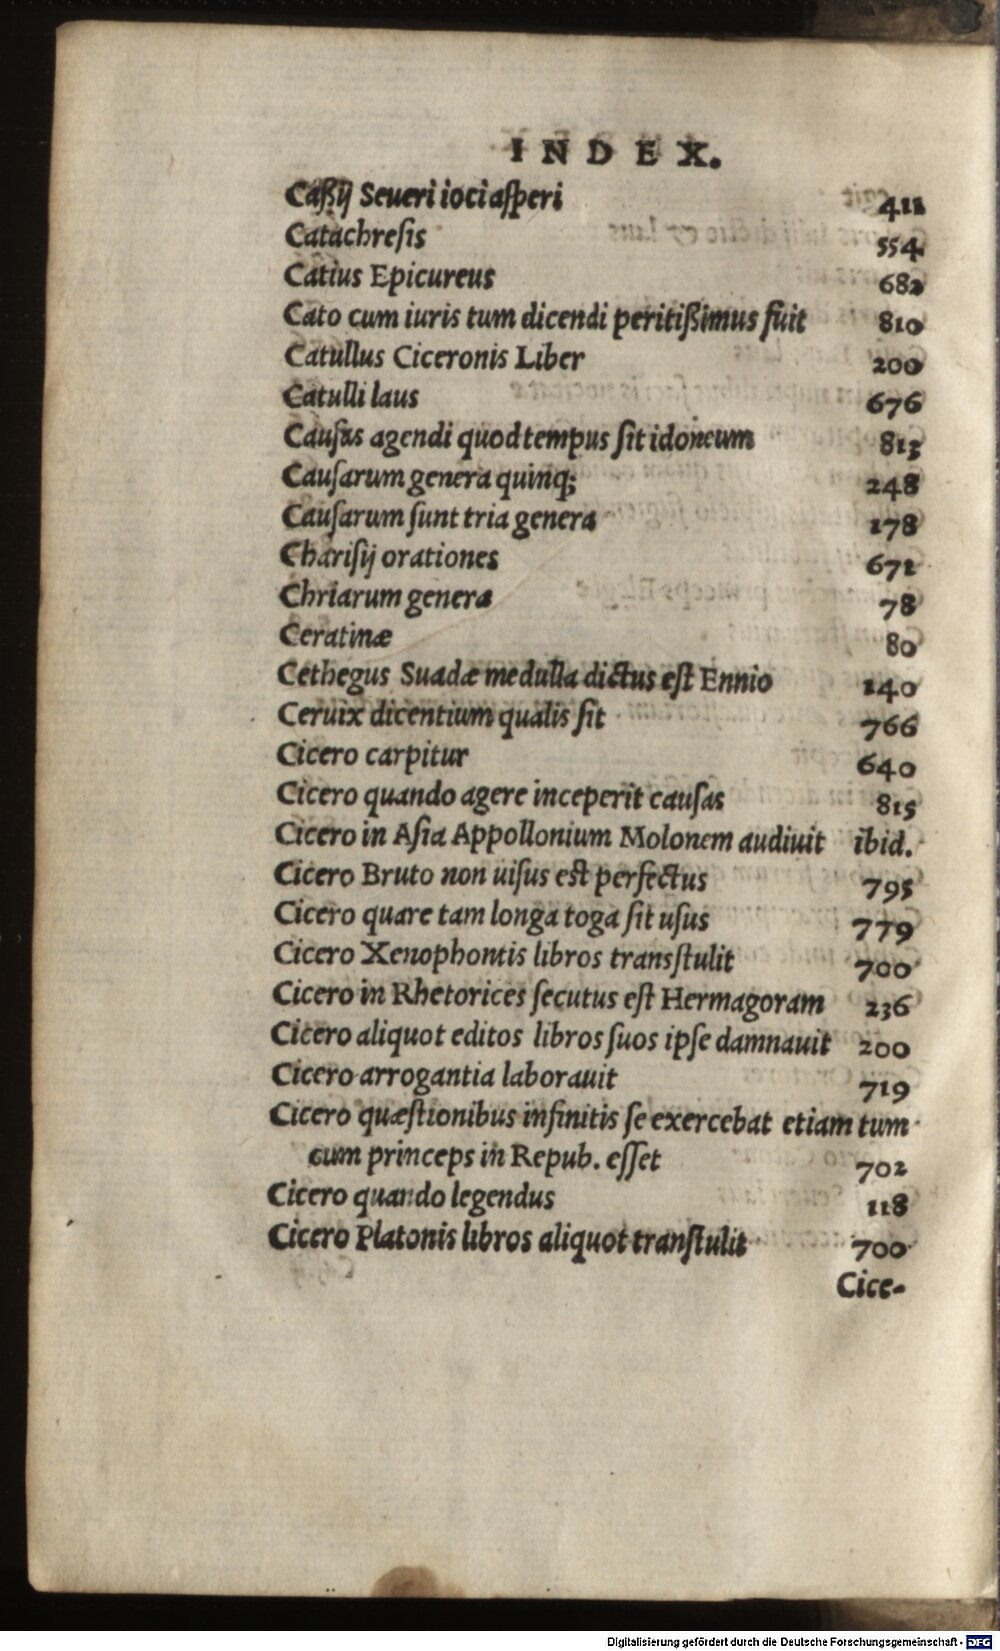 INDEX.
Caßij Seueri ioci aſperi 411
Catachreſis 554
Catius Epicureus 682
Cato cum iuris tum dicendi peritißimus fuit 810
Catullus Ciceronis Liber 200
Catulli laus 676
Cauſas agendi quod tempus ſit idoneum 813
Cauſarum genera quinq; 248
Cauſarum ſunt tria genera 178
Chariſij orationes 671
Chriarum genera 78
Ceratinæ 80
Cethegus Suadæ medulla dictus eſt Ennio 140
Ceruix dicentium qualis ſit 766
Cicero carpitur 640
Cicero quando agere inceperit cauſas 815
Cicero in Aſia Appollonium Molonem audiuit ibid.
Cicero Bruto non uiſus eſt perfectus 795
Cicero quare tam longa toga ſit uſus 779
Cicero Xenophontis libros transſtulit 700
Cicero in Rhetorices ſecutus eſt Hermagoram 236
Cicero aliquot editos libros ſuos ipſe damnauit 200
Cicero arrogantia laborauit 719
Cicero quæſtionibus infinitis ſe exercebat etiam tum
cum princeps in Repub. eſſet 702
Cicero quando legendus 118
Cicero Platonis libros aliquot tranſtulit 700
Cice-
Digitalisierung gefördert durch die Deutsche Forschungsgemeinschaft - DFG